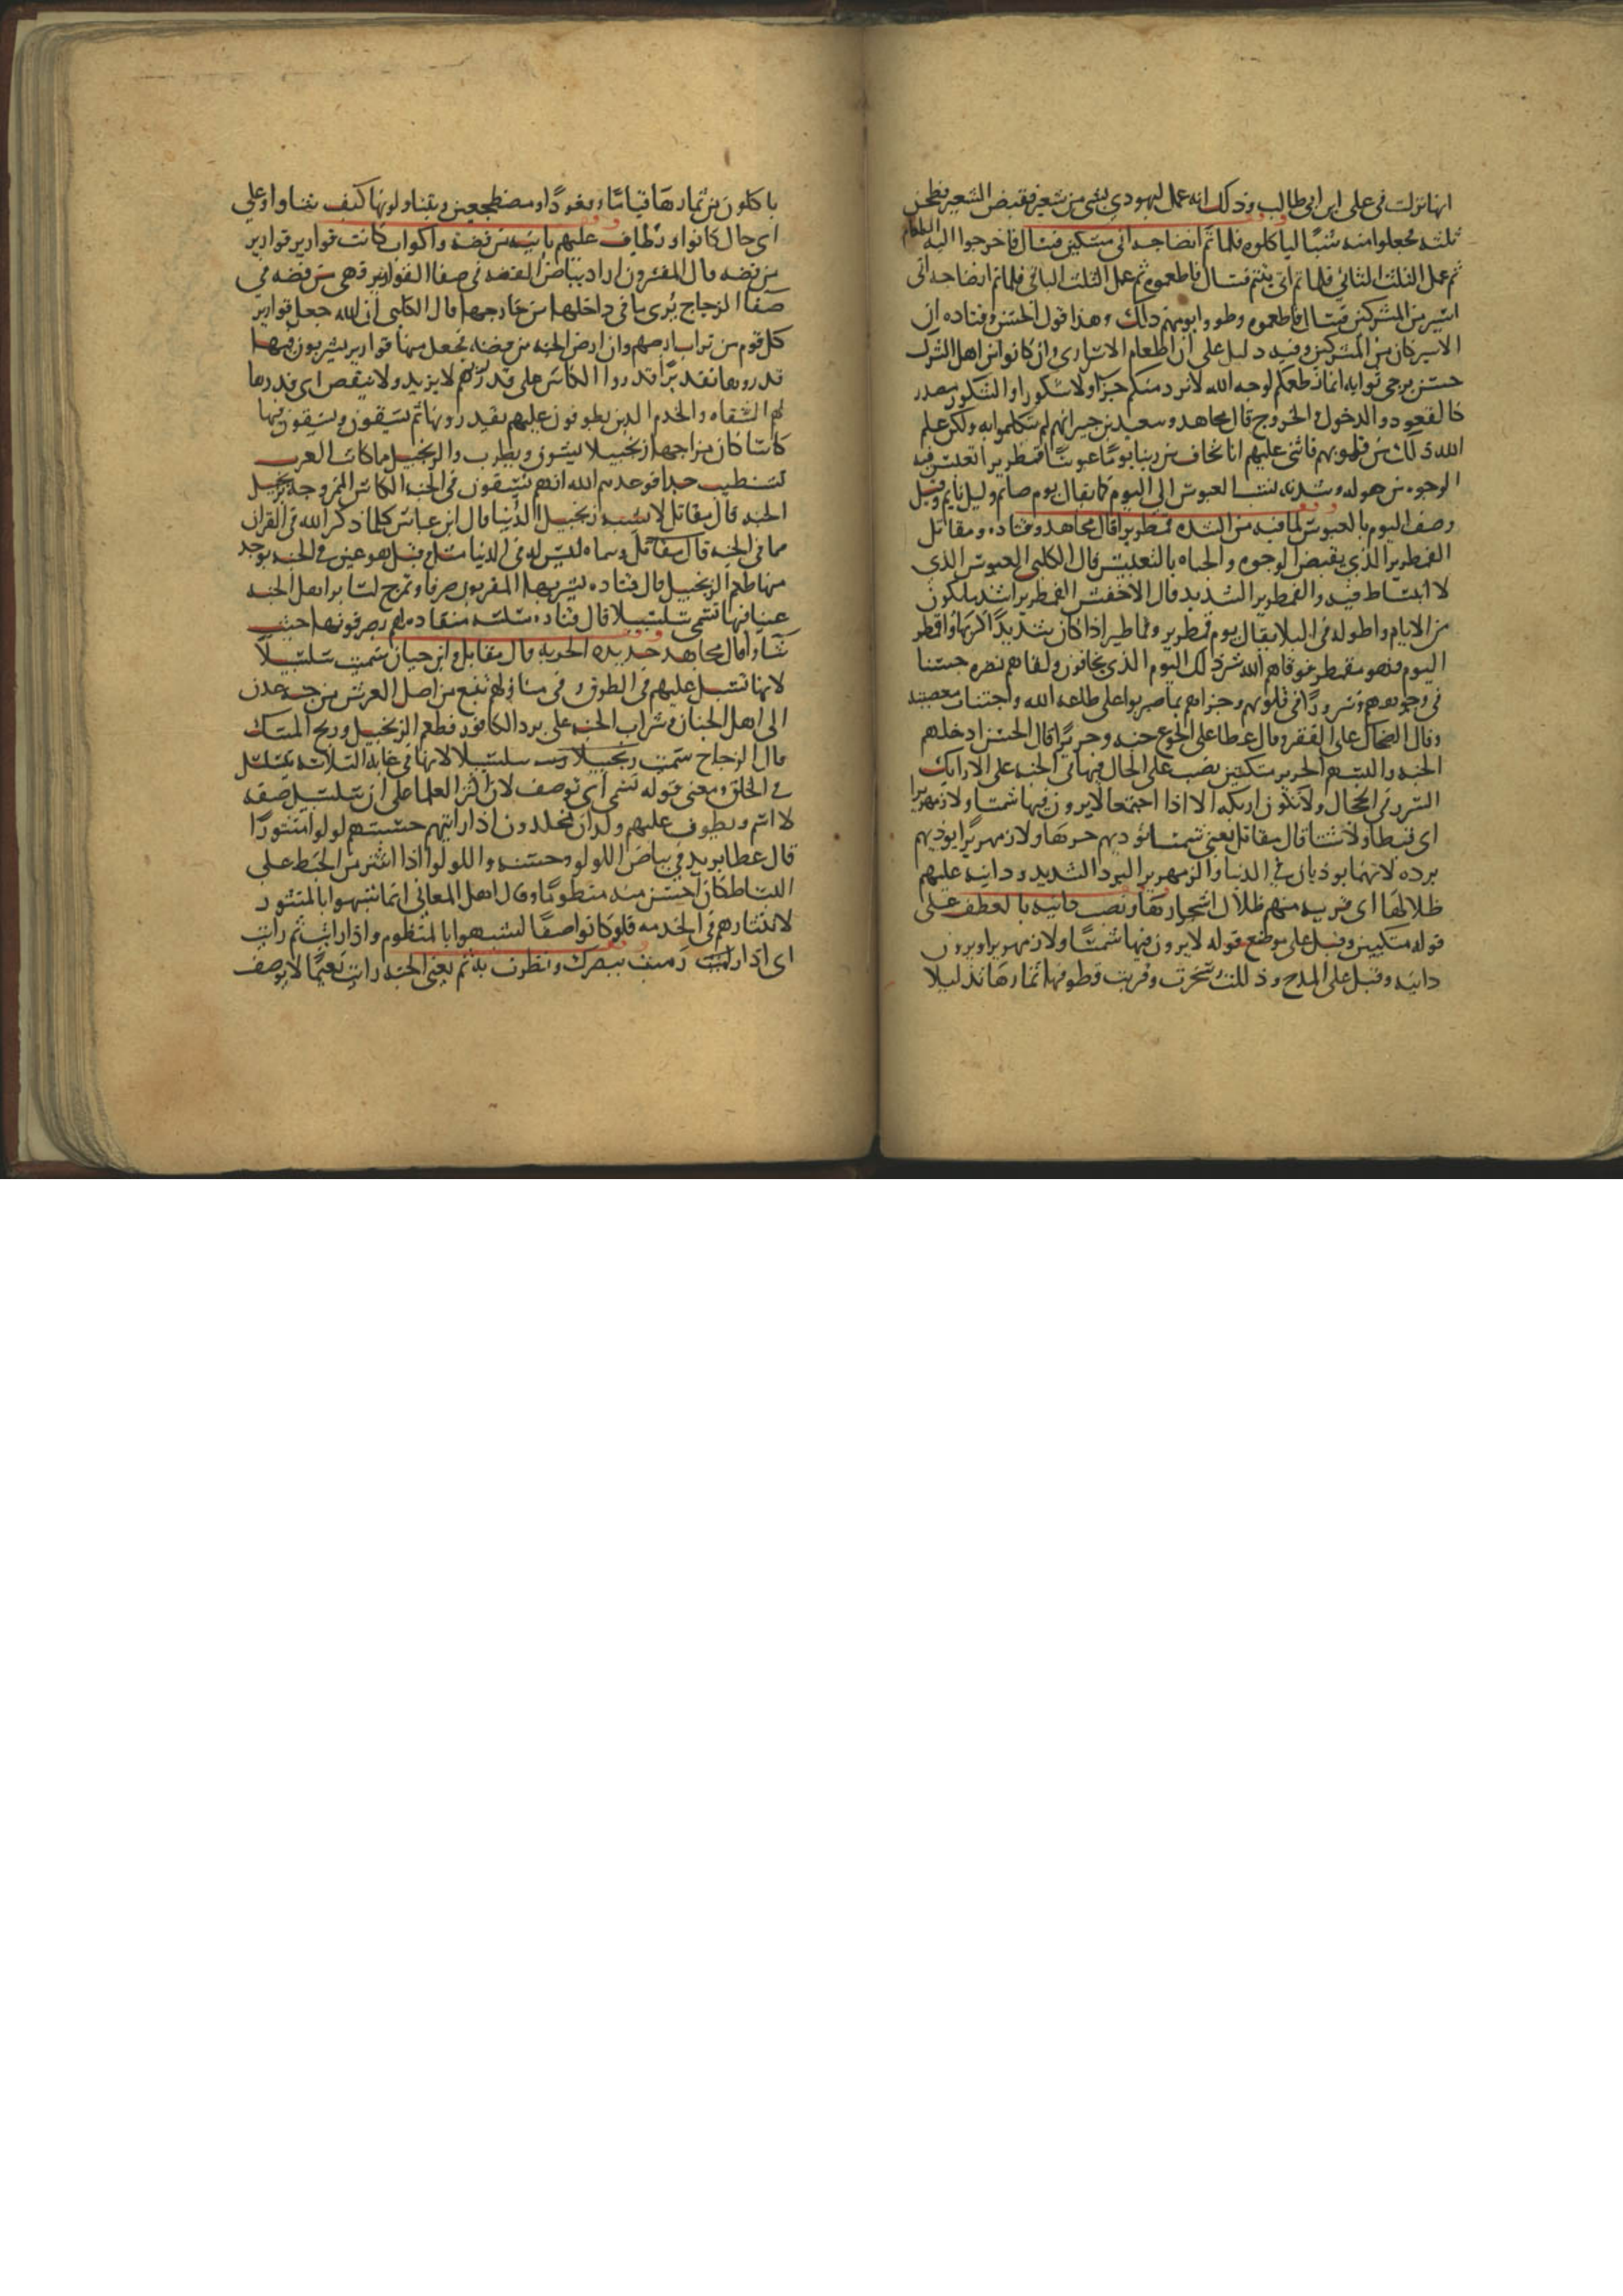 انها نزلت في على ابن ابي طالب وذلك انه عمل ليهودي بشي من شعير فقبض الشعير فطحن
ثلثه فجعلوا منه شيا لياكلوه فلما تم انضاجه اتى مسكين فسال فاخرجوا اليه الطعام
ثم عمل الثلث الثاني فلما تم اتى يتيم فسال فاطعموه ثم عمل الثلث الباقي فلما تم انضاجه اتى
اسير من المشركين فسال فاطعموه وطووا يومهم ذلك وهذا قول الحسن وقتاده ان
الاسير كان من المشركين وفيه دليل على ان اطعام الاسارى وان كانوا من اهل الشرك
حسن يرجى ثوابه انما نطعمكم لوجه الله لا نريد منكم جزاء ولا شكورا والشكور مصدر
كالقعود والدخول والخروج قال مجاهد وسعيد بن جبير انهم لم يتكلموا به ولكن علم
الله ذلك من قلوبهم فاثنى عليهم انا نخاف من ربنا يوما عبوسا قمطريرا تعبس فيه
الوجوه من هوله وشدته نسب العبوس الى اليوم كما يقال يوم صائم وليل نايم وقيل
وصف اليوم بالعبوس لما فيه من الشده قمطريرا قال مجاهد وقتاده ومقاتل
القمطرير الذي يقبض الوجوه والجباه بالتعبيس قال الكلبي العبوس الذي
لا انبساط فيه والقمطرير الشديد قال الاخفش القمطرير اشد ما يكون
من الايام واطوله في البلا يقال يوم قمطرير وقماطير اذا كان شديدا كريها واقمطر
اليوم فهو مقمطر فوقاهم الله شر ذلك اليوم الذي يخافون ولقاهم نضره حسنا
في وجوههم وسرورا في قلوبهم وجزاهم بما صبروا على طاعه الله واجتناب معصيته
وقال الضحاك على الفقر وقال عطا على الجوع جنه وحريرا قال الحسن ادخلهم
الجنه والبسهم الحرير متكئين نصب على الحال فيها في الجنه على الارايك
السرر في الحجال ولا تكون اريكه الا اذا اجتمعا لا يرون فيها شمسا ولا زمهريرا
اى قيظا ولا شتا قال مقاتل يعني شمسا يوذيهم حرها ولا زمهريرا يوذيهم
برده لانهما يوذيان في الدنيا والزمهرير البرد الشديد ودانيه عليهم
ظلالها اى قريبه منهم ظلال اشجارها ونصب دانيه بالعطف على
قوله متكيين وقيل على موضع قوله لا يرون فيها شمسا ولا زمهريرا ويرون
دانيه وقيل على المدح وذللت سخرت وقربت قطوفها ثمارها تذليلا
ياكلون من ثمارها قياما وقعودا ومضطجعين ويتناولونها كيف شاوا وعلى
اى حال كانوا ويطاف عليهم بانيه من فضة واكواب كانت قوارير قوارير
من فضه قال المفسرون اراد بياض الفضه في صفا القوارير فهى من فضه في
صفا الزجاج يرى ما في داخلها من خارجها قال الكلبي ان الله جعل قوارير
كل قوم من تراب ارضهم وان ارض الجنه من فضه فجعل منها قوارير يشربون فيها
قدروها تقديرا قدروا الكاس على قدر ريهم لا يزيد ولا ينقص اى قدرها
لهم السقاه والخدم الذين يطوفون عليهم يقدرونها ثم يسقون ويسقون فيها
كاسا كان مزاجها زنجبيلا يشوق ويطرب والزنجبيل مما كانت العرب
تستطيب جدا فوعدهم الله انهم يسقون في الجنه الكاس الممزوجه بزنجبيل
الجنه قال مقاتل لا يشبه زنجبيل الدنيا قال ابن عباس كلما ذكر الله في القران
مما في الجنه قال مقاتل وسماه ليس له في الدنيا مثل وقيل هو عين في الجنه يوجد
منها طعم الزنجبيل قال قتاده يشربها المقربون صرفا وتمزج لساير اهل الجنه
عينا فيها تسمى سلسبيلا قال قتاده سلسه منقاده لهم يصرفونها حيث
شاوا قال مجاهد حديده الجريه قال مقاتل وابن حيان سميت سلسبيلا
لانها تسيل عليهم في الطرق وفي منازلهم تنبع من اصل العرش من جنه عدن
الى اهل الجنان وشراب الجنه على برد الكافور وطعم الزنجبيل وريح المسك
قال الزجاج سميت سلسبيلا لانها في غاية السلاسه تتسلسل
في الحلق ومعنى قوله تسمى اى توصف لان اكثر العلما على ان سلسبيل صفه
لا اسم ويطوف عليهم ولدان مخلدون اذا رايتهم حسبتهم لولوا منثورا
قال عطا يريد في بياض اللولو وحسنه واللولو اذا انتثر من الخيط على
البساط كان احسن منه منظوما وقال اهل المعاني انما شبهوا بالمنثور
لانتثارهم في الخدمه فلو كانوا صفا لشبهوا بالمنظوم واذا رايت ثم رايت
اى اذا رميت ببصرك ونظرت به ثم يعني الجنه رايت نعيما لا يوصف